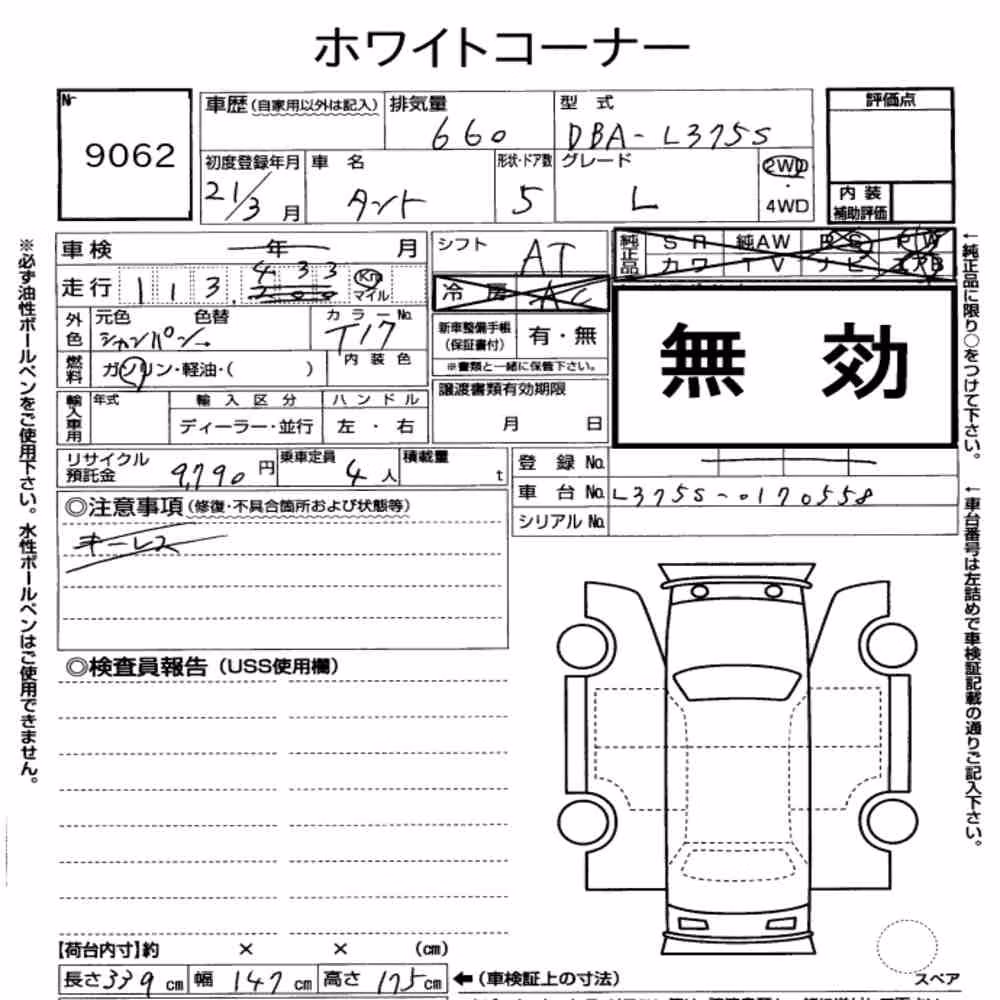 ホワイトコーナー
№ 9062
車歴(自家用以外は記入) 排気量 660 型式 DBA-L375S 評価点
初度登録年月 21/3月 車名 タント 形状・ドア数 5 グレード L 2WD・4WD 内装補助評価
車検 年 月 シフト AT 純正品 SR 純AW PS PW
走行 113,433 Km マイル 冷房 AC カワ TV ナビ
外色 元色 シャンパン 色替 カラーNo. T17 新車整備手帳(保証書付) 有・無
燃料 ガソリン・軽油・( ) 内装色 ※書類と一緒に保管下さい。
無効
輸入車用 年式 輸入区分 ディーラー・並行 ハンドル 左・右 譲渡書類有効期限 月 日
リサイクル預託金 9,790円 乗車定員 4人 積載量 t 登録No.
車台No. L375S-0170558
シリアルNo.
◎注意事項(修復・不具合箇所および状態等)
キーレス
◎検査員報告(USS使用欄)
【荷台内寸】約 × × (cm)
長さ339cm 幅147cm 高さ175cm ←(車検証上の寸法) スペア
※必ず油性ボールペンをご使用下さい。水性ボールペンはご使用できません。
←純正品に限り○をつけて下さい。
←車台番号は左詰めで車検証記載の通りご記入下さい。